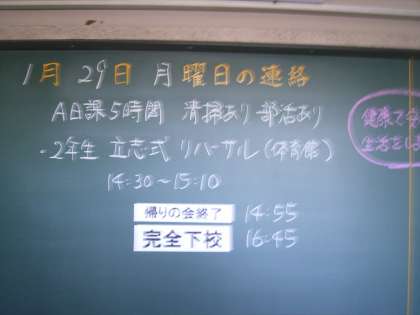 1月29日 月曜日の連絡
A日課5時間 清掃あり 部活あり
・2年生 立志式 リハーサル(体育館)
14:30~15:10
帰りの会終了 14:55
完全下校 16:45
健康で安
生活をし